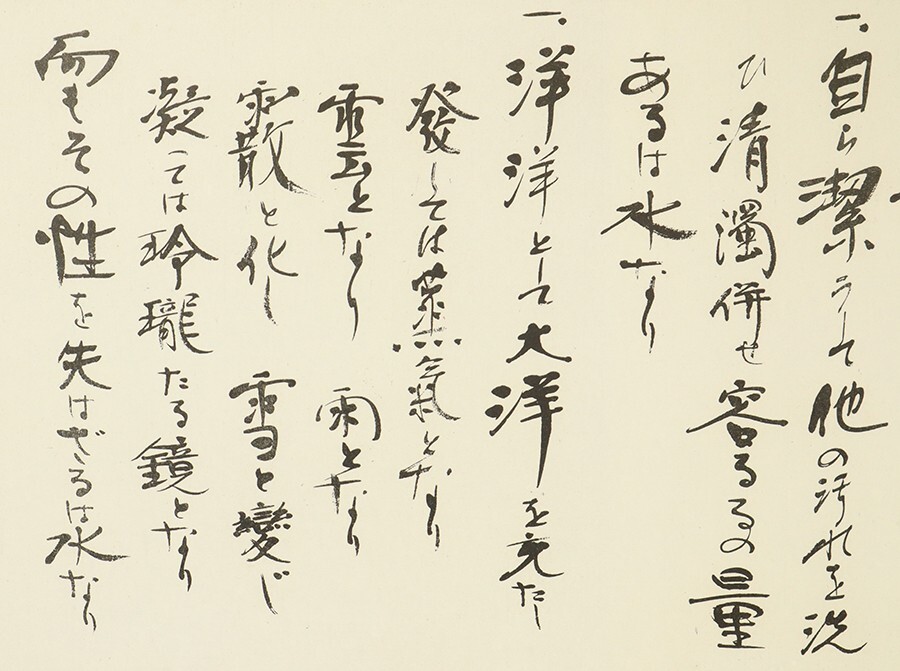 一、自ら潔うして他の汚れを洗
ひ清濁併せ容るるの量
あるは水なり
一、洋洋として大洋を充たし
發しては蒸氣となり
雲となり 雨となり
雪と變じ
凝っては玲瓏たる鏡となり
而もその性を失はざるは水なり